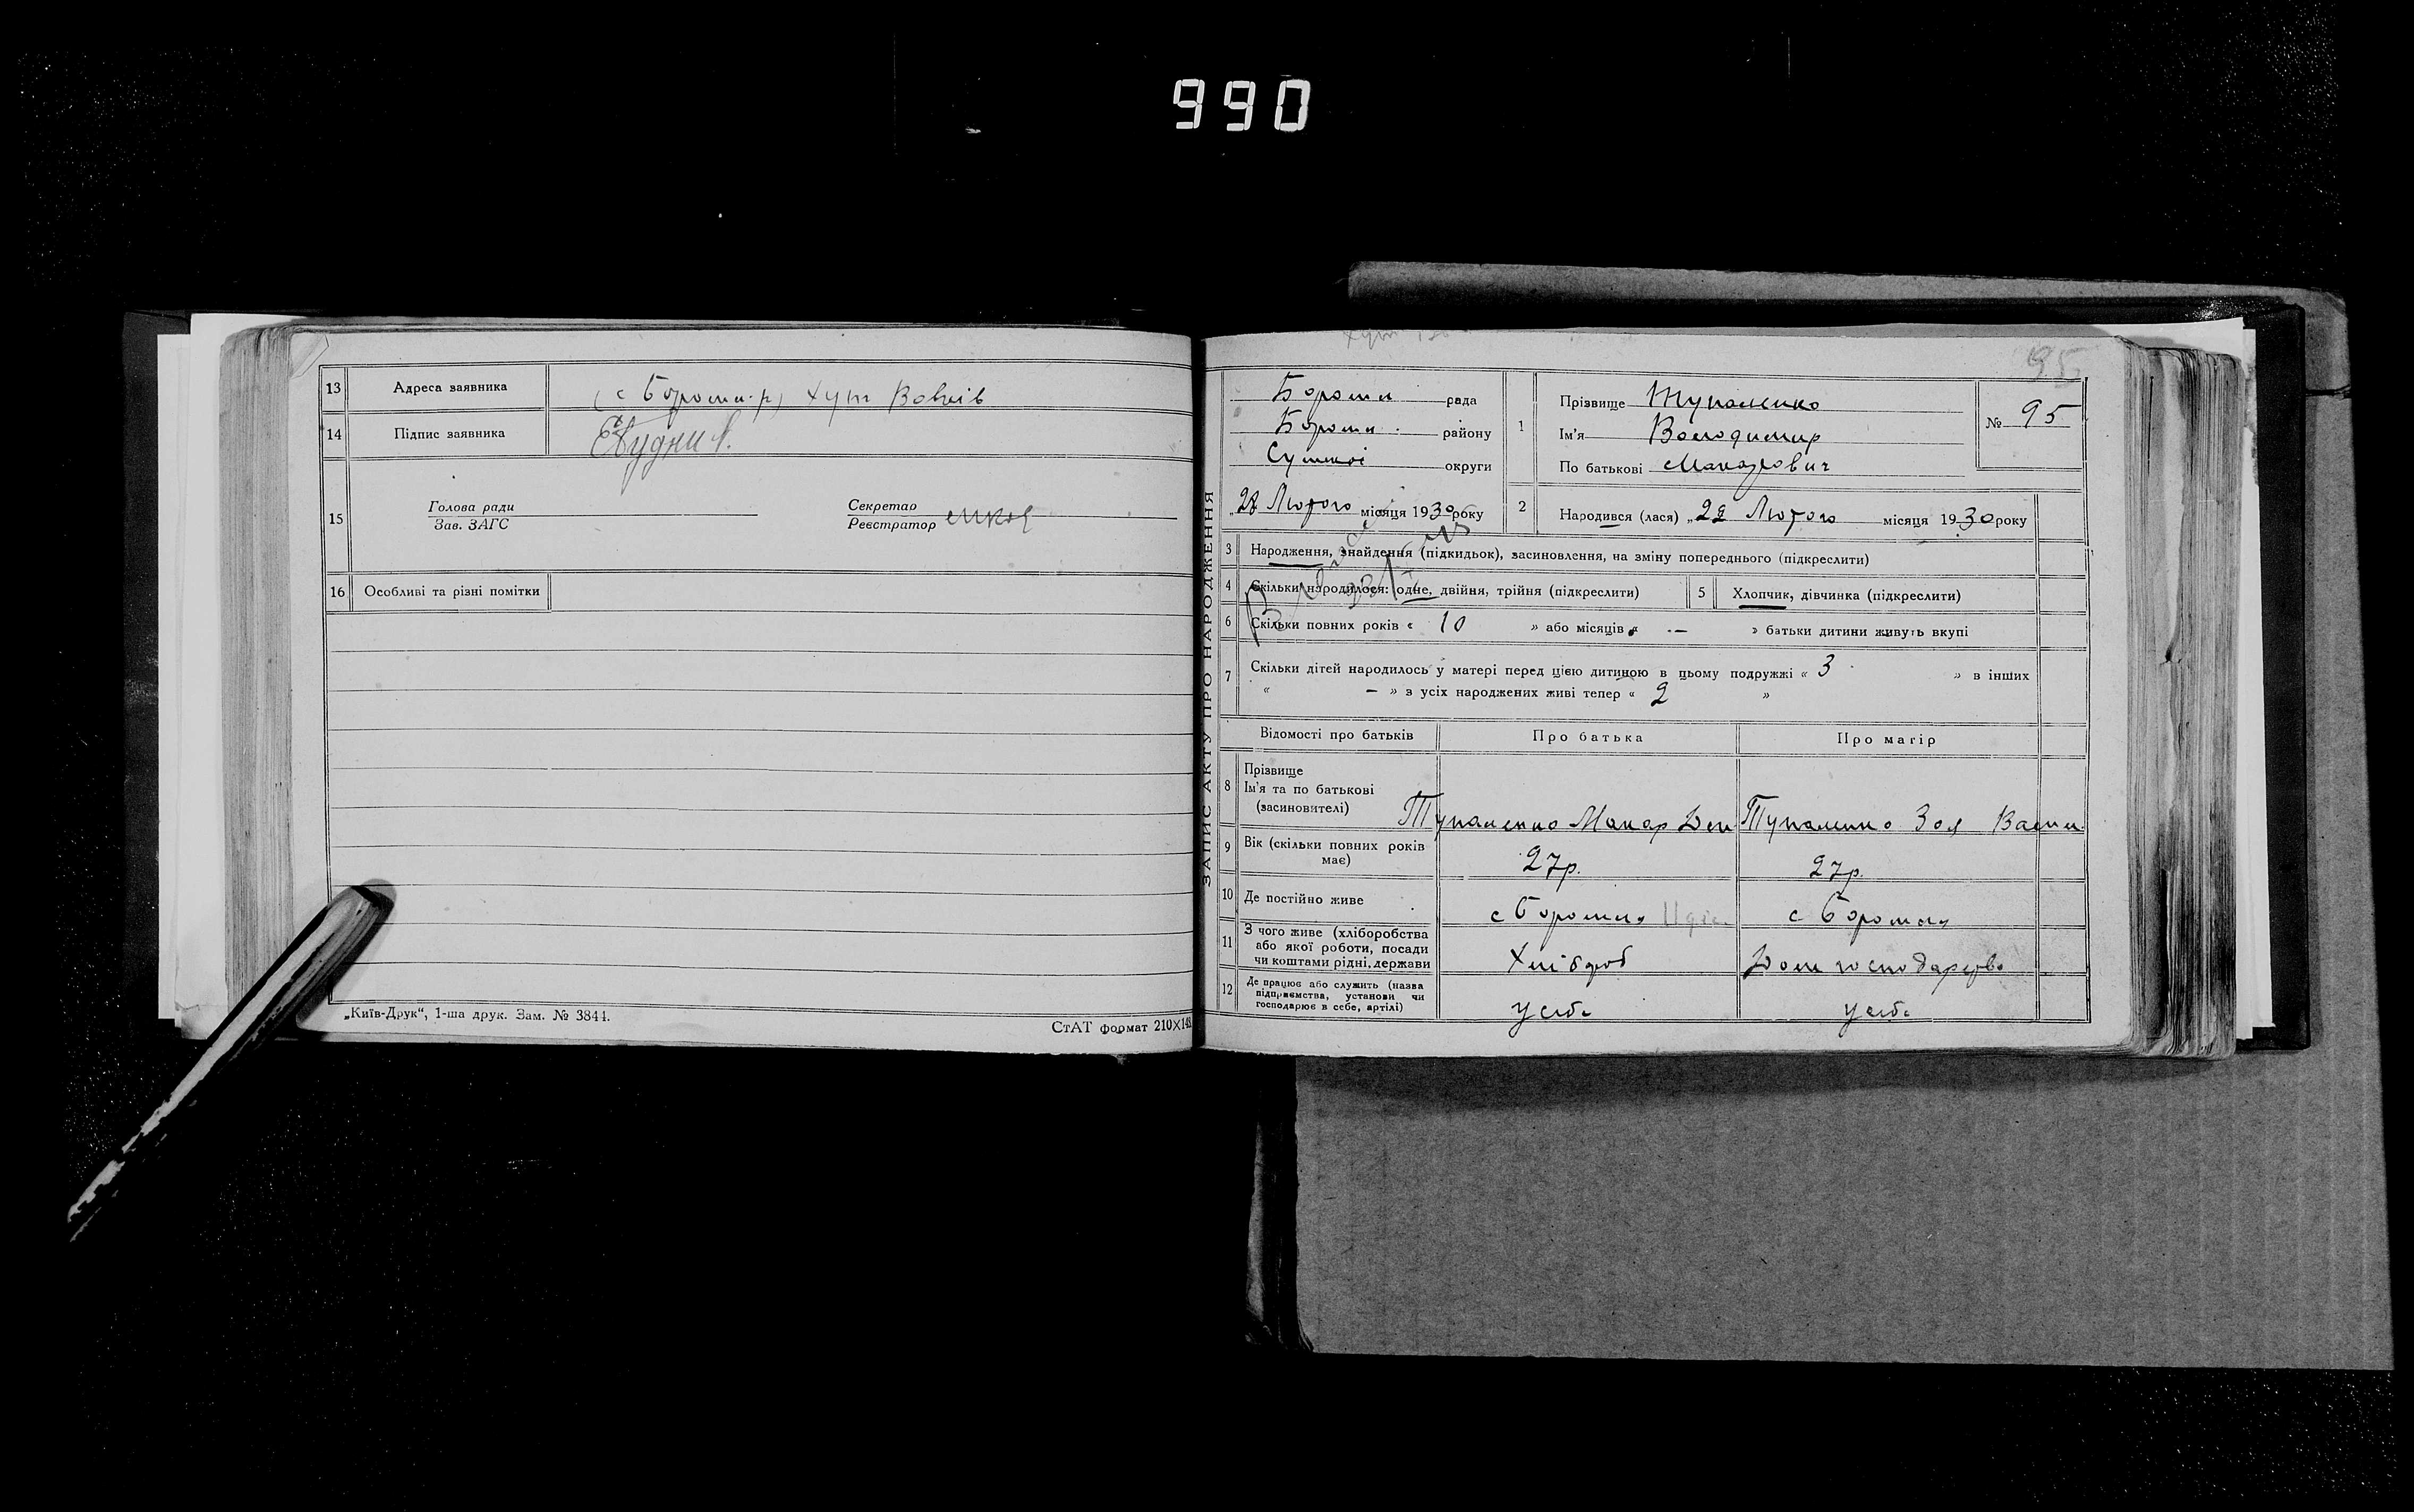 990
13 Адреса заявника (с Боромл. р) Хут Вовків
14 Підпис заявника
15 Голова ради
Зав. ЗАГС
Секретар
Реєстратор
16 Особливі та різні помітки
„Київ-Друк“, 1-ша друк. Зам. № 3844.
СтАТ формат 210×148
ЗАПИС АКТУ ПРО НАРОДЖЕННЯ
95
Боромл рада
Боромл. району
Сумської округи
„28 Лютого місяця 1930 року
1 Прізвище Тупаленко
Ім'я Володимир
По батькові Макарович
№ 95
2 Народився (лася) „22 Лютого місяця 1930 року
3 Народження, знайдення (підкидьок), засиновлення, на зміну попереднього (підкреслити)
4 Скільки народилося: одне, двійня, трійня (підкреслити)
5 Хлопчик, дівчинка (підкреслити)
6 Скільки повних років « 10 » або місяців « — » батьки дитини живуть вкупі
7 Скільки дітей народилось у матері перед цією дитиною в цьому подружжі « 3 » в інших
« — » з усіх народжених живі тепер « 2 »
Відомості про батьків Про батька Про матір
8 Прізвище
Ім'я та по батькові
(засиновителі)
Тупаленко Макар Дем Тупаленко Зоя Васил.
9 Вік (скільки повних років має) 27р. 27р.
10 Де постійно живе с Боромля с Боромля
11 З чого живе (хліборобства
або якої роботи, посади
чи коштами рідні, держави
Хлібороб Дом господарство
12 Де працює або служить (назва
підприємства, установи чи
господарює в себе, артілі)
у себе у себе